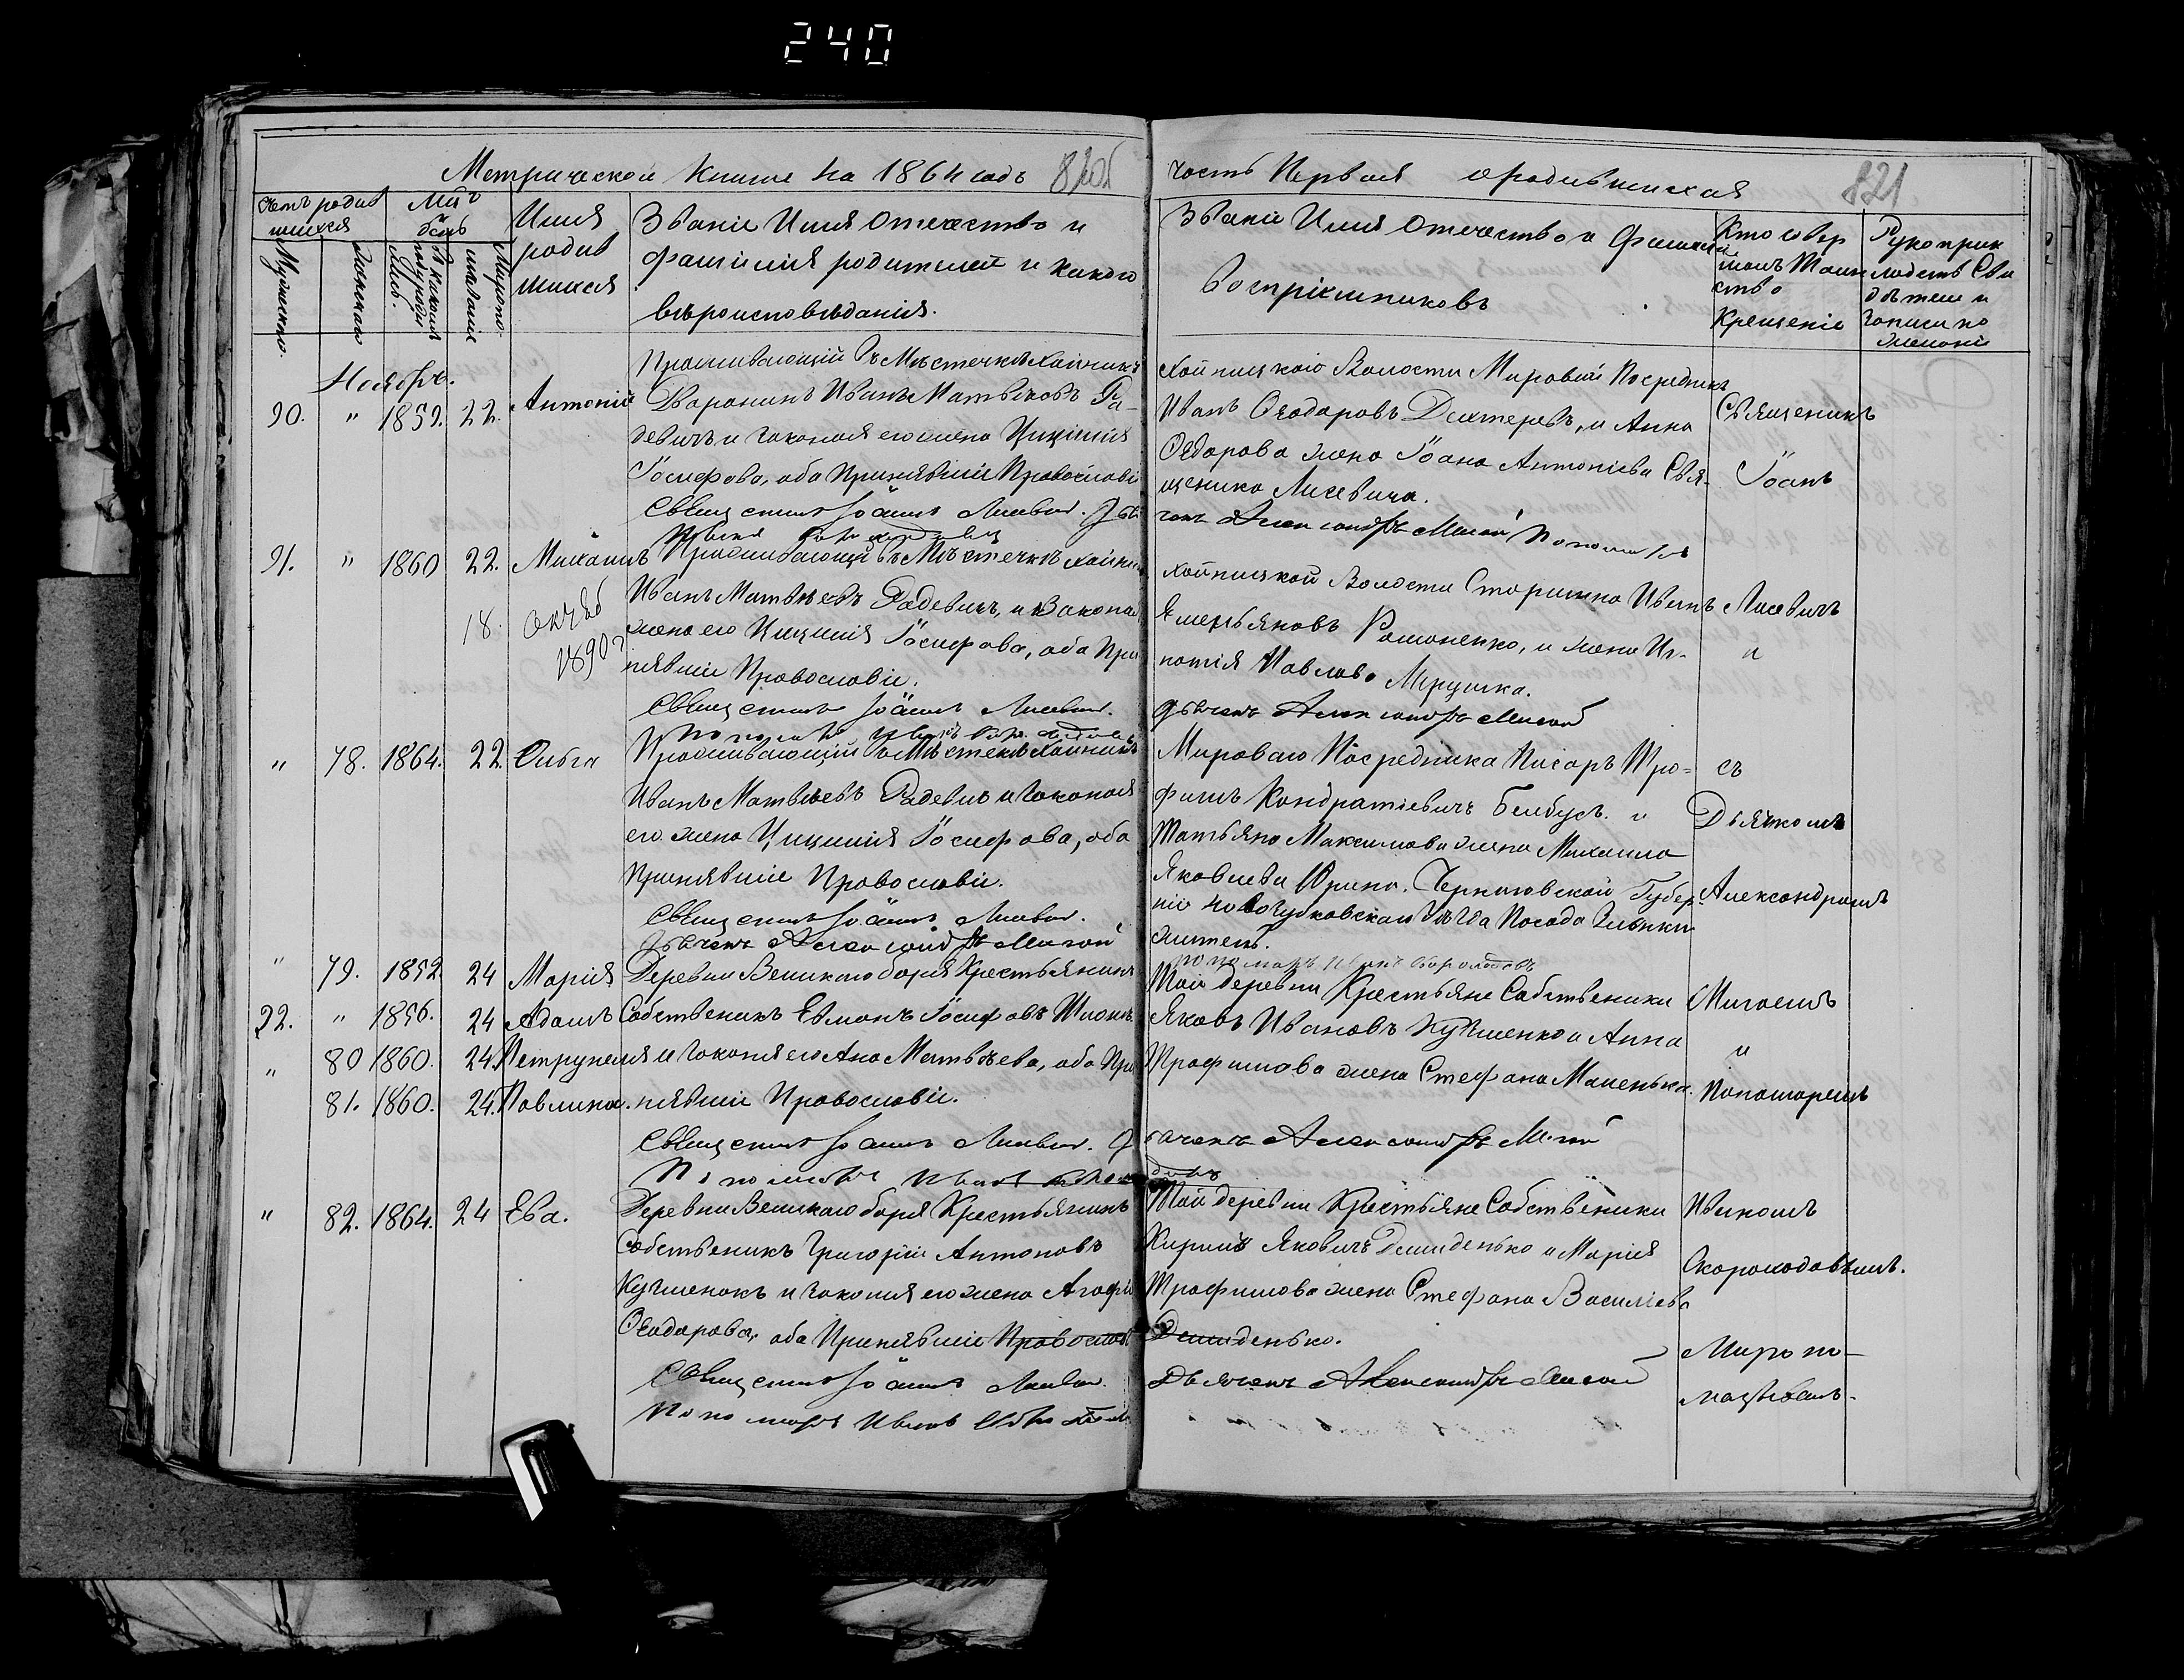 240
Метрической Книги на 1864 годъ
часть Первая о родившихся
821
Счетъ родив
шихся
Мужеска.
Женска
Мѣс.
день
Въ какомъ
году роди
лись.
Миропо-
мазанія
Имя
родив
шихся
Званіе Имя Отечество и
фамилія родителей и какого
вѣроисповѣданія.
Званіе Имя Отечество и Фамилія
Воспріемниковъ
Кто совер
шалъ Таин
ство
Крещеніе
Рукоприк
ладств Сви
дѣтелей
записи по
желанію
Ноябрь.
90. " 1859. 22. Антоній
Проживающій въ Мѣстечкѣ Хойникъ
Дворянинъ Иванъ Матвѣевъ Ра-
девичъ и законая его жена Цицилія
Іосифова, оба Принявшіе Православі
Священникъ Іоаннъ Лисевичъ.
Хойницкаго Волости Мировый Посредникъ
Иванъ Ѳеодоровъ Дехтеревъ, и Анна
Ѳедорова жена Іоана Антоніева Свя-
щеника Лисевича.
чокъ Александръ Мигай Пономарь
Священикъ
Іоанъ
91. " 1860 22. Михаилъ
18. Октяб
1890 г
Проживающій въ Мѣстечкѣ Хойни
Иванъ Матвѣевъ Радевичъ, и Законая
жена его Цицилія Іосифова, оба При
нявшіе Православіе.
Священникъ Іоаннъ Лисевичъ.
Хойницкой Волости Старшина Иванъ
Емельяновъ Романенко, и жена Иг-
натія Павлова Мрушка.
Дьячекъ Александръ Мигай
Лисевичъ
и
" 78. 1864. 22. Ольга
Проживающій въ Мѣстечкѣ Хойникъ
Иванъ Матвѣевъ Радевичъ и законая
его жена Цицилія Іосифова, оба
Принявшіе Православіе.
Священникъ Іоаннъ Лисевичъ.
Дьячекъ Александръ Мигай
Мироваго Посредника Писарь Тро-
фимъ Кондратіевичъ Белбусъ. и
Татьяна Максимова жена Михаила
Яковлева Юрина. Черниговской Губер-
ніи Новозубковскаго Уѣзда Посада Злынки
житель.
Пономарь Иванъ Скороходовъ
съ
Дьячкомъ
Александромъ
" 79. 1852. 24 Марія
92. " 1856. 24 Адамъ
" 80 1860. 24. Петрунеля
81. 1860. 24. Павлина.
Деревни Великаго боря Крестьянинъ
Собственикъ Евмонъ Іосифовъ
и законая его Ана Матвѣева, оба При
нявшіе Православіе.
Священникъ Іоаннъ Лисевичъ. Д
Пономарь Иванъ Скорохо
Той деревни Крестьяне Собственики
Яковъ Ивановъ Кучменко и Анна
Трофимова жена Стефана Маменька.
ьячекъ Александръ Мигай
довъ
Мигаемъ
и
Пономаремъ
" 82. 1864. 24 Ева.
Деревни Великаго боря Крестьянинъ
Собственикъ Григорій Антоновъ
Кучменокъ и законая его жена Агафія
Ѳеодорова, оба Принявшіе Православі
Священникъ Іоаннъ Лисевичъ.
Пономарь Иванъ Скороходовъ
Той деревни Крестьяне Собственики
Кирилъ Яковичъ Демиденько и Марія
Трофимова жена Стефана Василіева
Демиденько.
Дьячекъ Александръ Мигай
Иваномъ
Скороходовымъ.
Миропо-
мазывалъ.